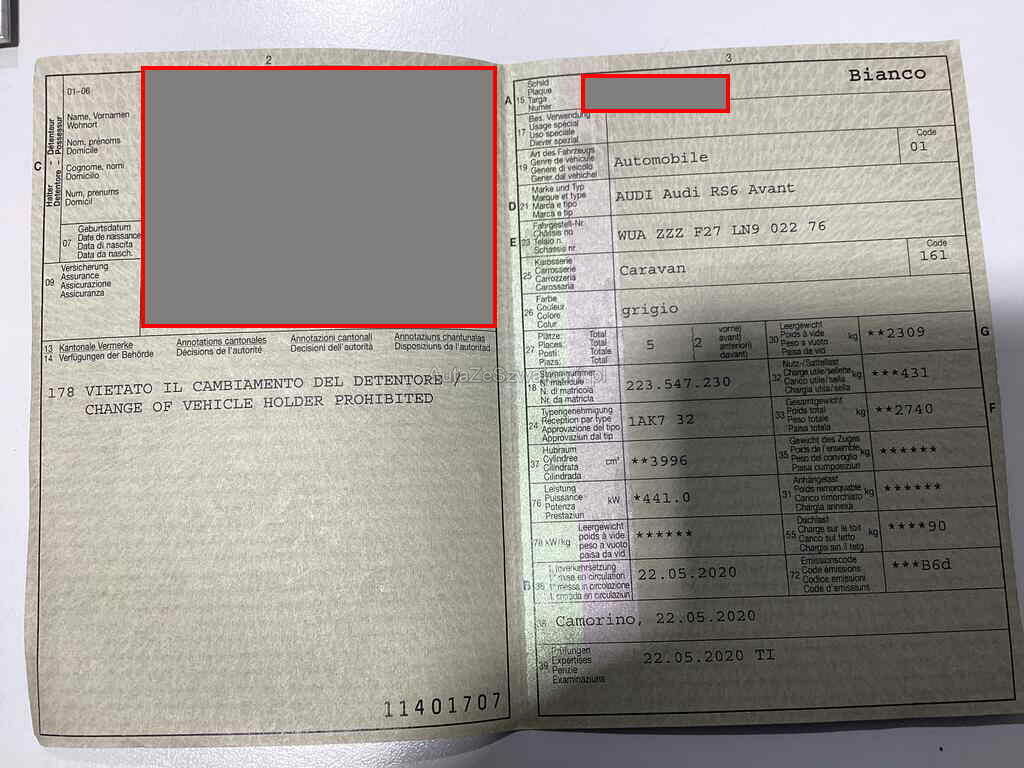 2
01-06
Name, Vornamen
Wohnort
Nom, prénoms
Domicile
Cognome, nomi
Domicilio
Num, prenums
Domicil
C
Halter - Détenteur
Detentore - Possessur
07
Geburtsdatum
Date de naissance
Data di nascita
Data da nasch.
09
Versicherung
Assurance
Assicurazione
Assicuranza
13 Kantonale Vermerke
14 Verfügungen der Behörde
Annotations cantonales
Décisions de l'autorité
Annotazioni cantonali
Decisioni dell'autorità
Annotaziuns chantunalas
Disposiziuns da l'autoritad
178 VIETATO IL CAMBIAMENTO DEL DETENTORE /
CHANGE OF VEHICLE HOLDER PROHIBITED
11401707
3
A
15
Schild
Plaque
Targa
Numer
Bianco
17
Bes. Verwendung
Usage spécial
Uso speciale
Diever spezial
19
Art des Fahrzeugs
Genre de véhicule
Genere di veicolo
Gener dal vehichel
Automobile
Code
01
D 21
Marke und Typ
Marque et type
Marca e tipo
Marca e tip
AUDI Audi RS6 Avant
E 23
Fahrgestell-Nr.
Châssis no
Telaio n.
Schassis nr.
WUA ZZZ F27 LN9 022 76
25
Karosserie
Carrosserie
Carrozzeria
Carossaria
Caravan
Code
161
26
Farbe
Couleur
Colore
Colur
grigio
27
Plätze: Total
Places: Total
Posti: Totale
Plazs: Total
5
2
vorne)
avant)
anteriori)
davant)
30
Leergewicht
Poids à vide
Peso a vuoto
Paisa da vid
kg
**2309
G
18
Stammnummer
N° matricule
N. di matricola
Nr. da matricla
223.547.230
32
Nutz-/Sattellast
Charge utile/sellette
Carico utile/sella
Chargia utila/sella
kg
***431
24
Typengenehmigung
Réception par type
Approvazione del tipo
Approvaziun dal tip
1AK7 32
33
Gesamtgewicht
Poids total
Peso totale
Paisa totala
kg
**2740
F
37
Hubraum
Cylindrée
Cilindrata
Cilindrada
cm³
**3996
35
Gewicht des Zuges
Poids de l'ensemble
Peso del convoglio
Paisa cumposiziun
kg
******
76
Leistung
Puissance
Potenza
Prestaziun
kW
*441.0
31
Anhängelast
Poids remorquable
Carico rimorchiato
Chargia annexa
kg
******
78 kW/kg
Leergewicht
poids à vide
peso a vuoto
paisa da vid
******
55
Dachlast
Charge sur le toit
Carico sul tetto
Chargia sin il tetg
kg
****90
B 36
1. Inverkehrsetzung
1re mise en circulation
1a messa in circolazione
22.05.2020
72
Emissionscode
Code émissions
Codice emissioni
Code d'emissiuns
***B6d
38
Camorino, 22.05.2020
39
Prüfungen
Expertises
Perizie
Examinaziuns
22.05.2020 TI
AutaZeSzwajcarii.pl